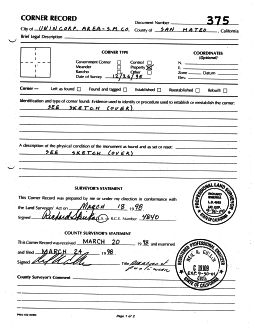 CORNER RECORD
Document Number 375
City of UNINCORP. AREA-S.M.CO. County of SAN MATEO, California
Brief Legal Description
CORNER TYPE
COORDINATES
(Optional)
Government Corner Control
Meander Property
Rancho Other
Date of Survey
N.
E.
Zone Datum
Elev.
Corner — Left as found Found and tagged Established Reestablished Rebuilt
Identification and type of corner found: Evidence used to identify or procedure used to establish or reestablish the corner:
SEE SKETCH (OVER)
A description of the physical condition of the monument as found and as set or reset:
SEE SKETCH (OVER)
SURVEYOR'S STATEMENT
This Corner Record was prepared by me or under my direction in conformance with
the Land Surveyors' Act on MARCH 18 1998
Signed
COUNTY SURVEYOR'S STATEMENT
This Corner Record was received MARCH 20 1998 and examined
and filed MARCH 24 1998
Signed Title
County Surveyor's Comment
Page 1 of 2